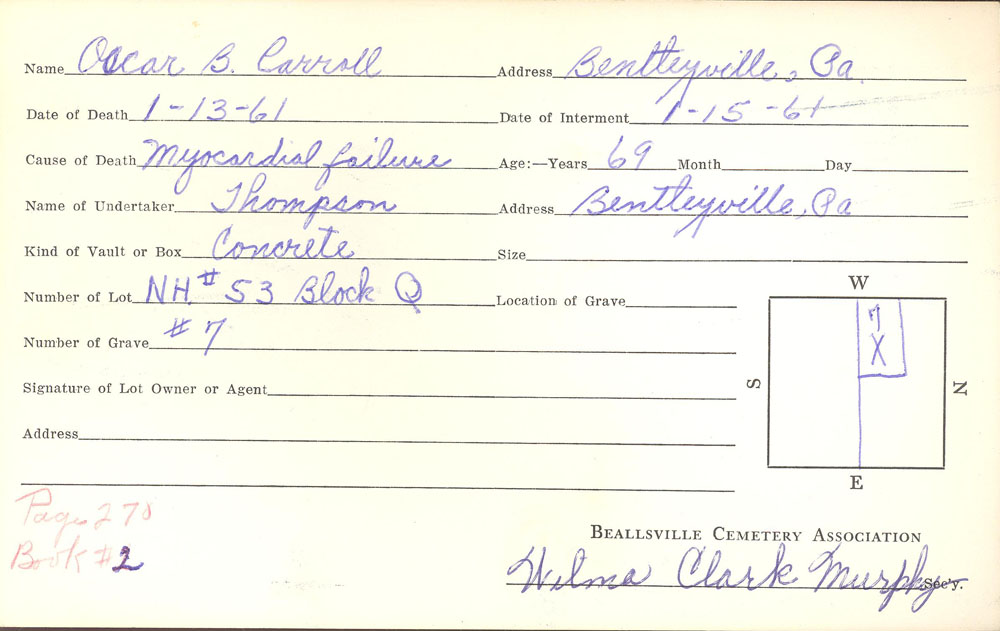 Name Oscar B. Carroll Address Bentleyville, Pa.
Date of Death 1-13-61 Date of Interment 1-15-61
Cause of Death Myocardial failure Age:—Years 69 Month Day
Name of Undertaker Thompson Address Bentleyville, Pa
Kind of Vault or Box Concrete Size
Number of Lot NH # 53 Block Q Location of Grave
W
Number of Grave # 7
7
X
S
N
Signature of Lot Owner or Agent
Address
E
Page 278
Book #2
BEALLSVILLE CEMETERY ASSOCIATION
Wilma Clark Murphy Sec'y.